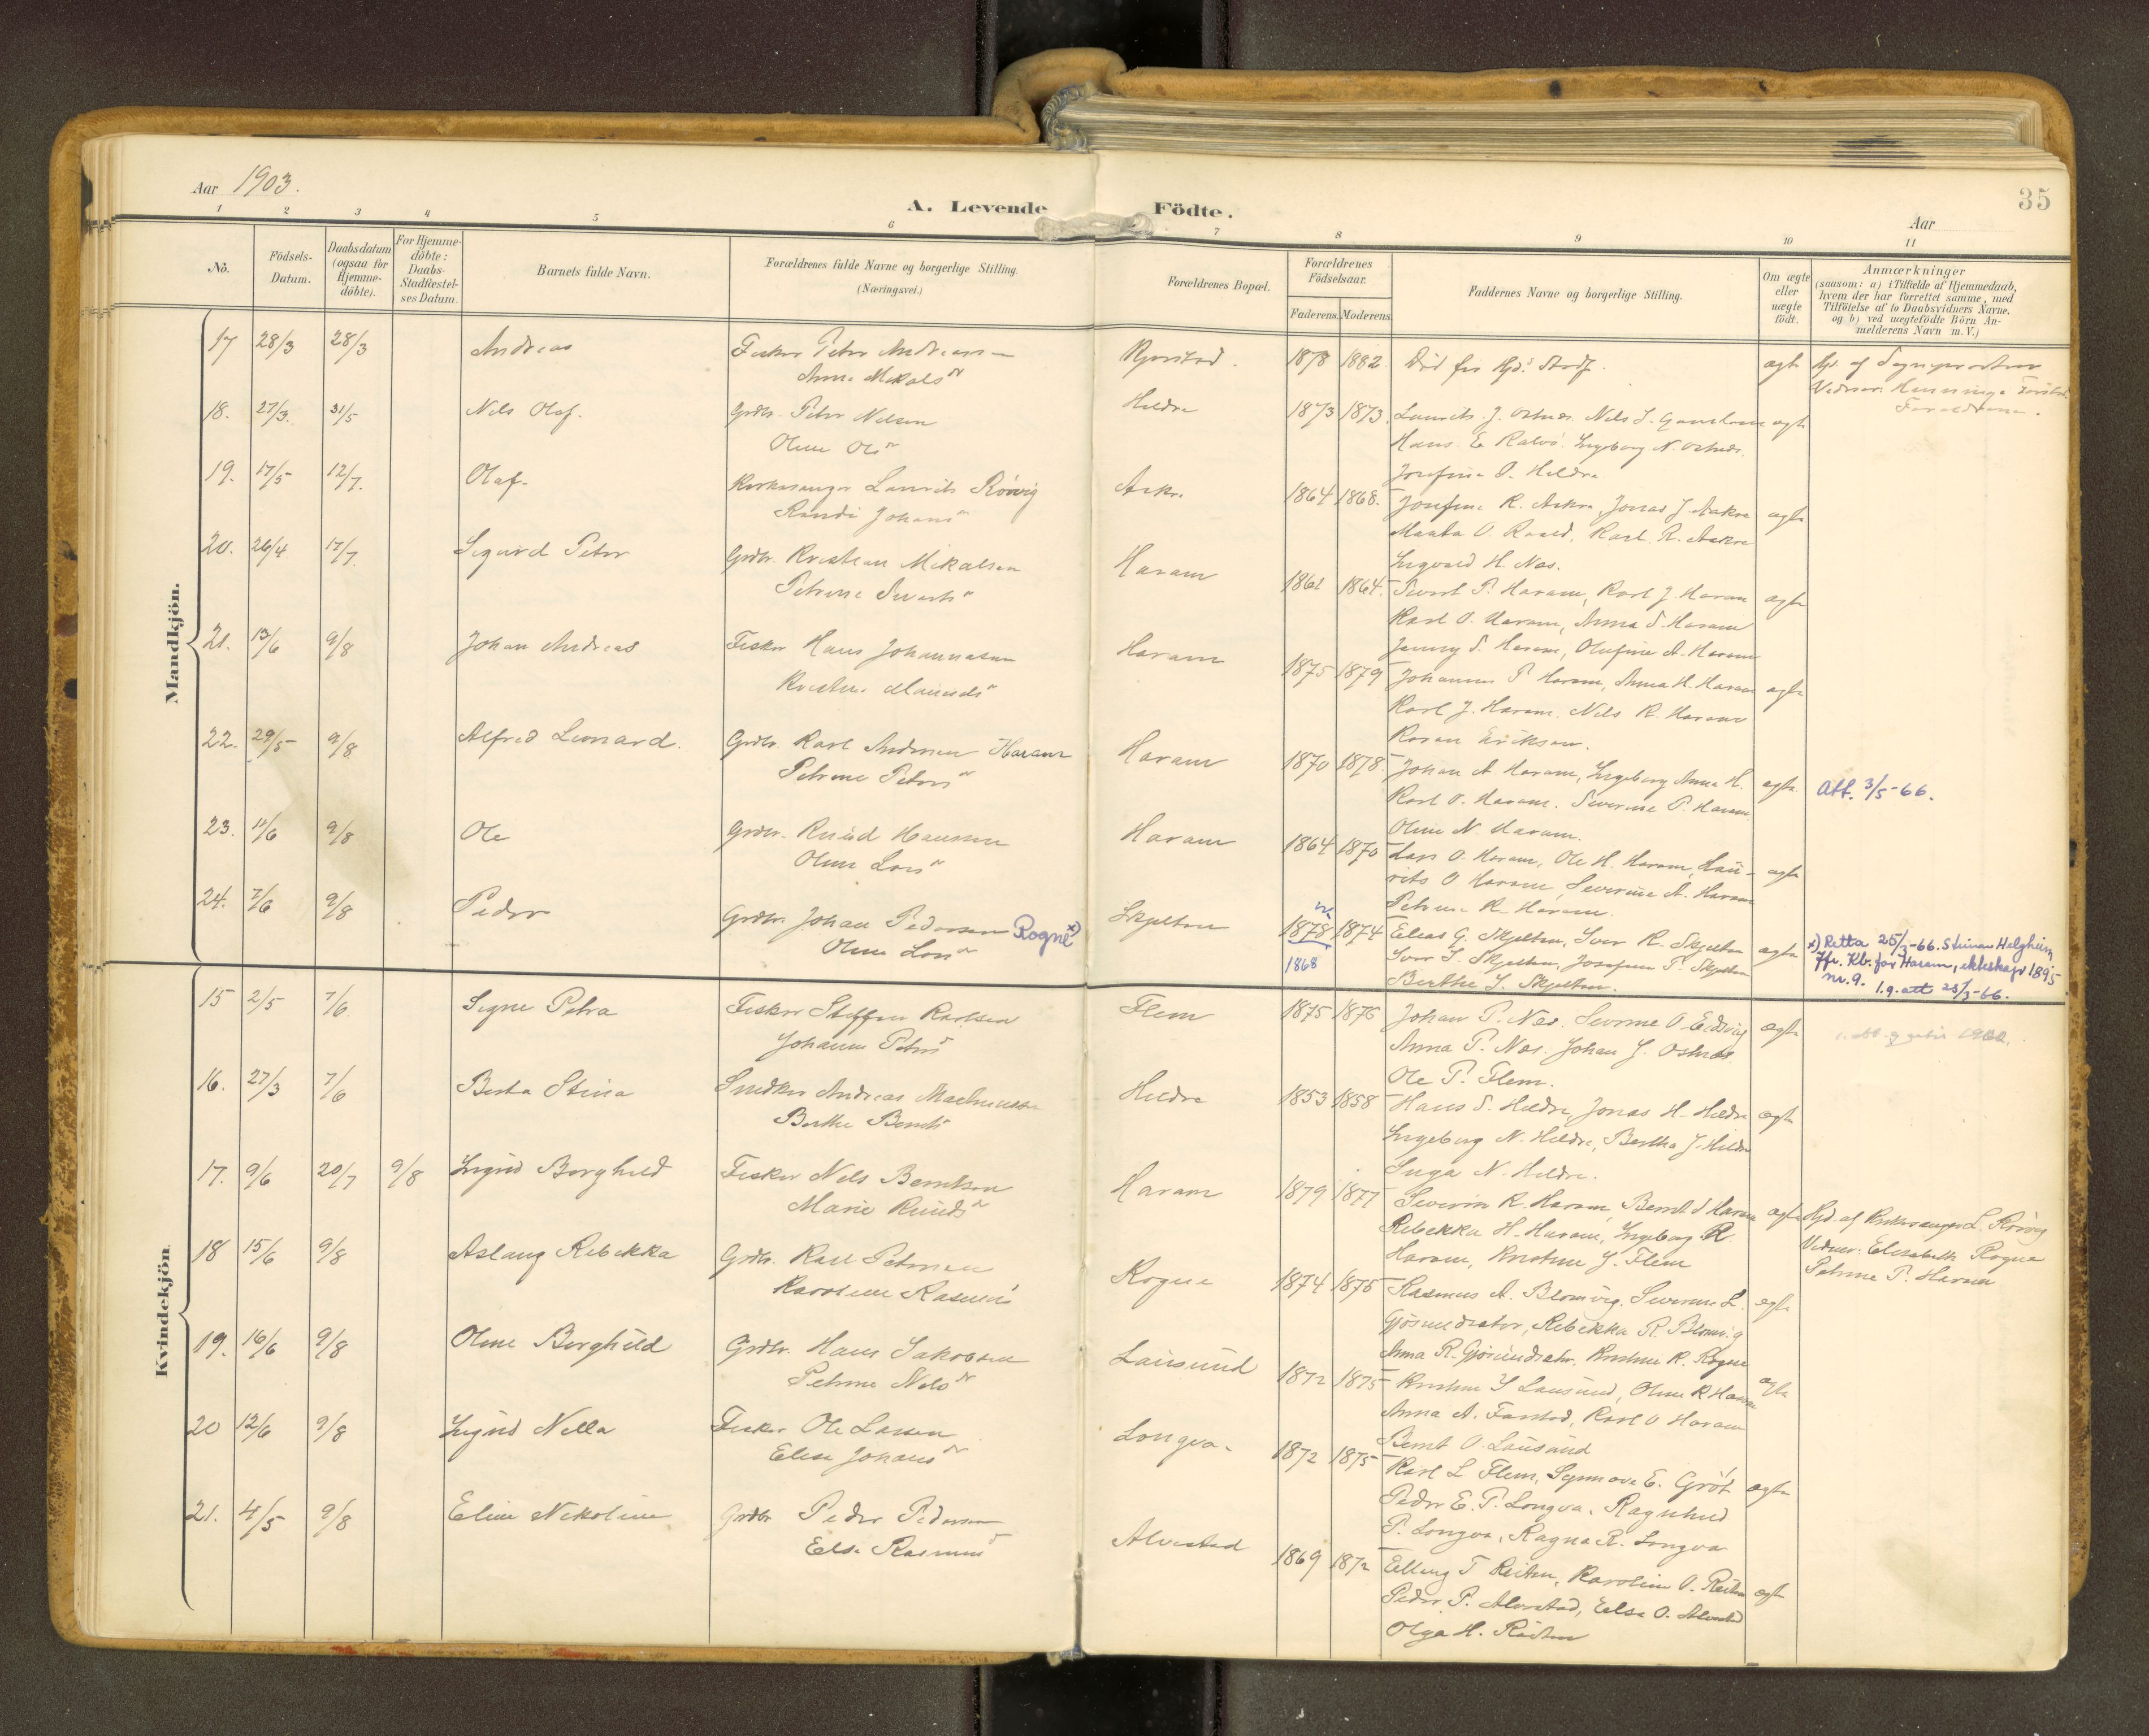 Aar 1903.
A. Levende Födte.
Aar
35
1 2 3 4 5 6 7 8 9 10 11
No.
Födsels-Datum.
Daabsdatum (ogsaa for Hjemme-döbte).
For Hjemme-döbte: Daabs-Stadfæstel-ses Datum.
Barnets fulde Navn.
Forældrenes fulde Navne og borgerlige Stilling.
(Næringsvei.)
Forældrenes Bopæl.
Forældrenes Födselsaar.
Faderens. Moderens.
Faddernes Navne og borgerlige Stilling.
Om ægte eller uægte födt.
Anmærkninger
(saasom: a) i Tilfælde af Hjemmedaab,
hvem der har forrettet samme, med
Tilföielse af to Daabsvidners Navne.
og b) ved uægtefödte Börn An-
melderens Navn m. V.)
Mandkjön.
17 28/3 28/3 Andreas Fisker Peter Andreassen 1878 1882 Död før Hjd.s Stadf. ægte Hjd. af Sognepresten
Anne Mikals
Forældrene.
18. 27/3. 31/5 Nils Olaf. Grdbr. Peter Nilsen Hildre 1873 1873
Oline Ols
Hans E. Ingeborg N.
Josefine P. Hildre
19. 17/5 12/7. Olaf. Kirkesanger Laurits Rövig Aakre 1864 1868. Josefine R. Aakre, Jonas J. Aakre ægte
Randi Johans
Karl R. Aakre
Ingvald H. Nes.
20. 26/4 17/7. Sigurd Peter Grdbr. Kristian Mikalsen Haram 1861 1864. Sivert P. Haram, Karl J. Haram ægte
Petrine Siverts
Karl O. Haram, Anna S. Haram
Jenny S. Haram, Olufine A. Haram
21. 13/6 9/8 Johan Andreas Fisker Hans Johannesen Haram 1875 1879 Johannes P. Haram, Anna H. Haram ægte
Karl J. Haram, Nils K. Haram
Eriksen.
22. 29/5 9/8 Alfred Leonard. Grdbr. Karl Andersen Haram Haram 1870 1878. Johan A. Haram, Ingeborg Anna H. ægte. Att. 3/5-66.
Petrine Peters
Karl O. Haram. Severine P. Haram
Oline N. Haram.
23. 11/6 9/8 Ole Grdbr. Knud Hansen Haram 1864 1870 Lars O. Haram, Ole H. Haram, Lau- ægte
Oline Lars
rits O. Haram, Severine A. Haram
Petrine K. Haram.
24. 7/6 9/8 Peder Grdbr. Johan Pedersen Rogne x) Skjelten 1878 1874 Elias G. Skjelten, Iver K. Skjelten ægte x) Retta 25/3-66. Steinar Helgheim
Oline Lars 1868
Iver I. Skjelten, Josefine P. Skjelten
Jfr. Kb. for Haram, ekteskap 1895
Berthe I. Skjelten.
nr. 9. l.g. att 25/3-66.
Kvindekjön.
15 2/5 7/6 Signe Petra Fisker Steffen Karlsen Flem 1875 1876 Johan P. Nes. Severine O. ægte
Johanne Peters
Anna P. Nes. Johan J.
Ole P. Flem.
16. 27/3 7/6 Berta Stina Snedker Andreas Hildre 1853 1858 Hans S. Hildre, Jonas H. Hildre ægte
Berthe Bernts
Ingeborg N. Hildre, Bertha J. Hildre
Inga N. Hildre.
17. 9/6 20/7 9/8 Sigrid Borghild Fisker Nils Berntsen Haram 1879 1877 Severin K. Haram, Bernt S. Haram ægte Hjd. af Kirkesanger L. Rövig
Marie Knuds
Rebekka H. Haram, Ingeborg K.
Vidner: Elisabeth Rogne
Haram, Kristine J. Flem
Petrine P. Haram
18 15/6 9/8 Aslaug Rebekka Grdbr. Karl Petersen Rogne 1874 1876 Rasmus A. Blomvig. Severine L. ægte
Karoline Rasmus
Gjösundsæter, Rebekka R. Blomvig
Anna R. Gjösundsæter, Kristine K. Rogne
19. 16/6 9/8 Oline Borghild Grdbr. Hans Jakobsen Lausund 1872 1875 Kristine J. Lausund, Oline K. Haram ægte
Petrine Nils
Anna A. Farstad, Karl O. Haram
Bernt O. Lausund
20 12/6 9/8 Sigrid Nella Fisker Ole Larsen Longva. 1872 1875 Karl L. Flem, Synnöve E. Gröt ægte
Elise Johans
Peder E. P. Longva, Ragnhild
P. Longva, Ragna R. Longva
21. 4/5 9/8 Eline Nikoline Grdbr. Peder Pedersen Alvestad 1869 1872 Elling T. Reiten, Karoline O. Reiten ægte
Else Rasmus
Peder P. Alvestad, Else O. Alvestad
Olga H. Reiten